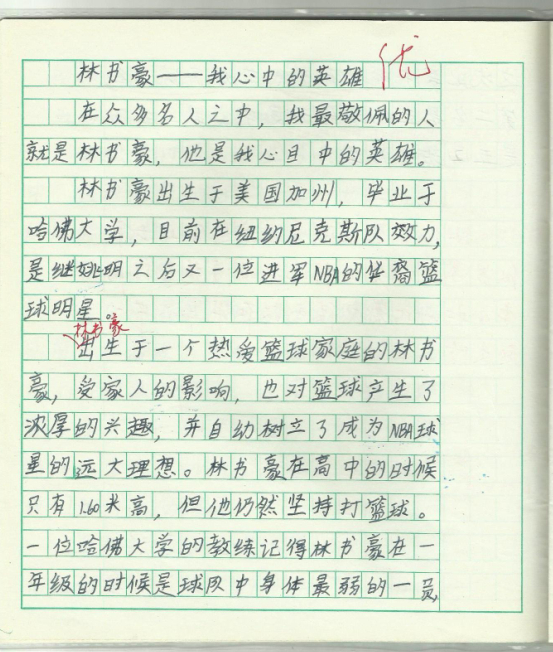 林书豪——我心中的英雄 优
在众多名人之中，我最敬佩的人
就是林书豪，他是我心目中的英雄。
林书豪出生于美国加州，毕业于
哈佛大学，目前在纽约尼克斯队效力，
是继姚明之后又一位进军NBA的华裔篮
球明星。
林书豪
出生于一个热爱篮球家庭的林书
豪，受家人的影响，也对篮球产生了
浓厚的兴趣，并自幼树立了成为NBA球
星的远大理想。林书豪在高中的时候
只有1.60米高，但他仍然坚持打篮球。
一位哈佛大学的教练记得林书豪在一
年级的时候是球队中身体最弱的一员，